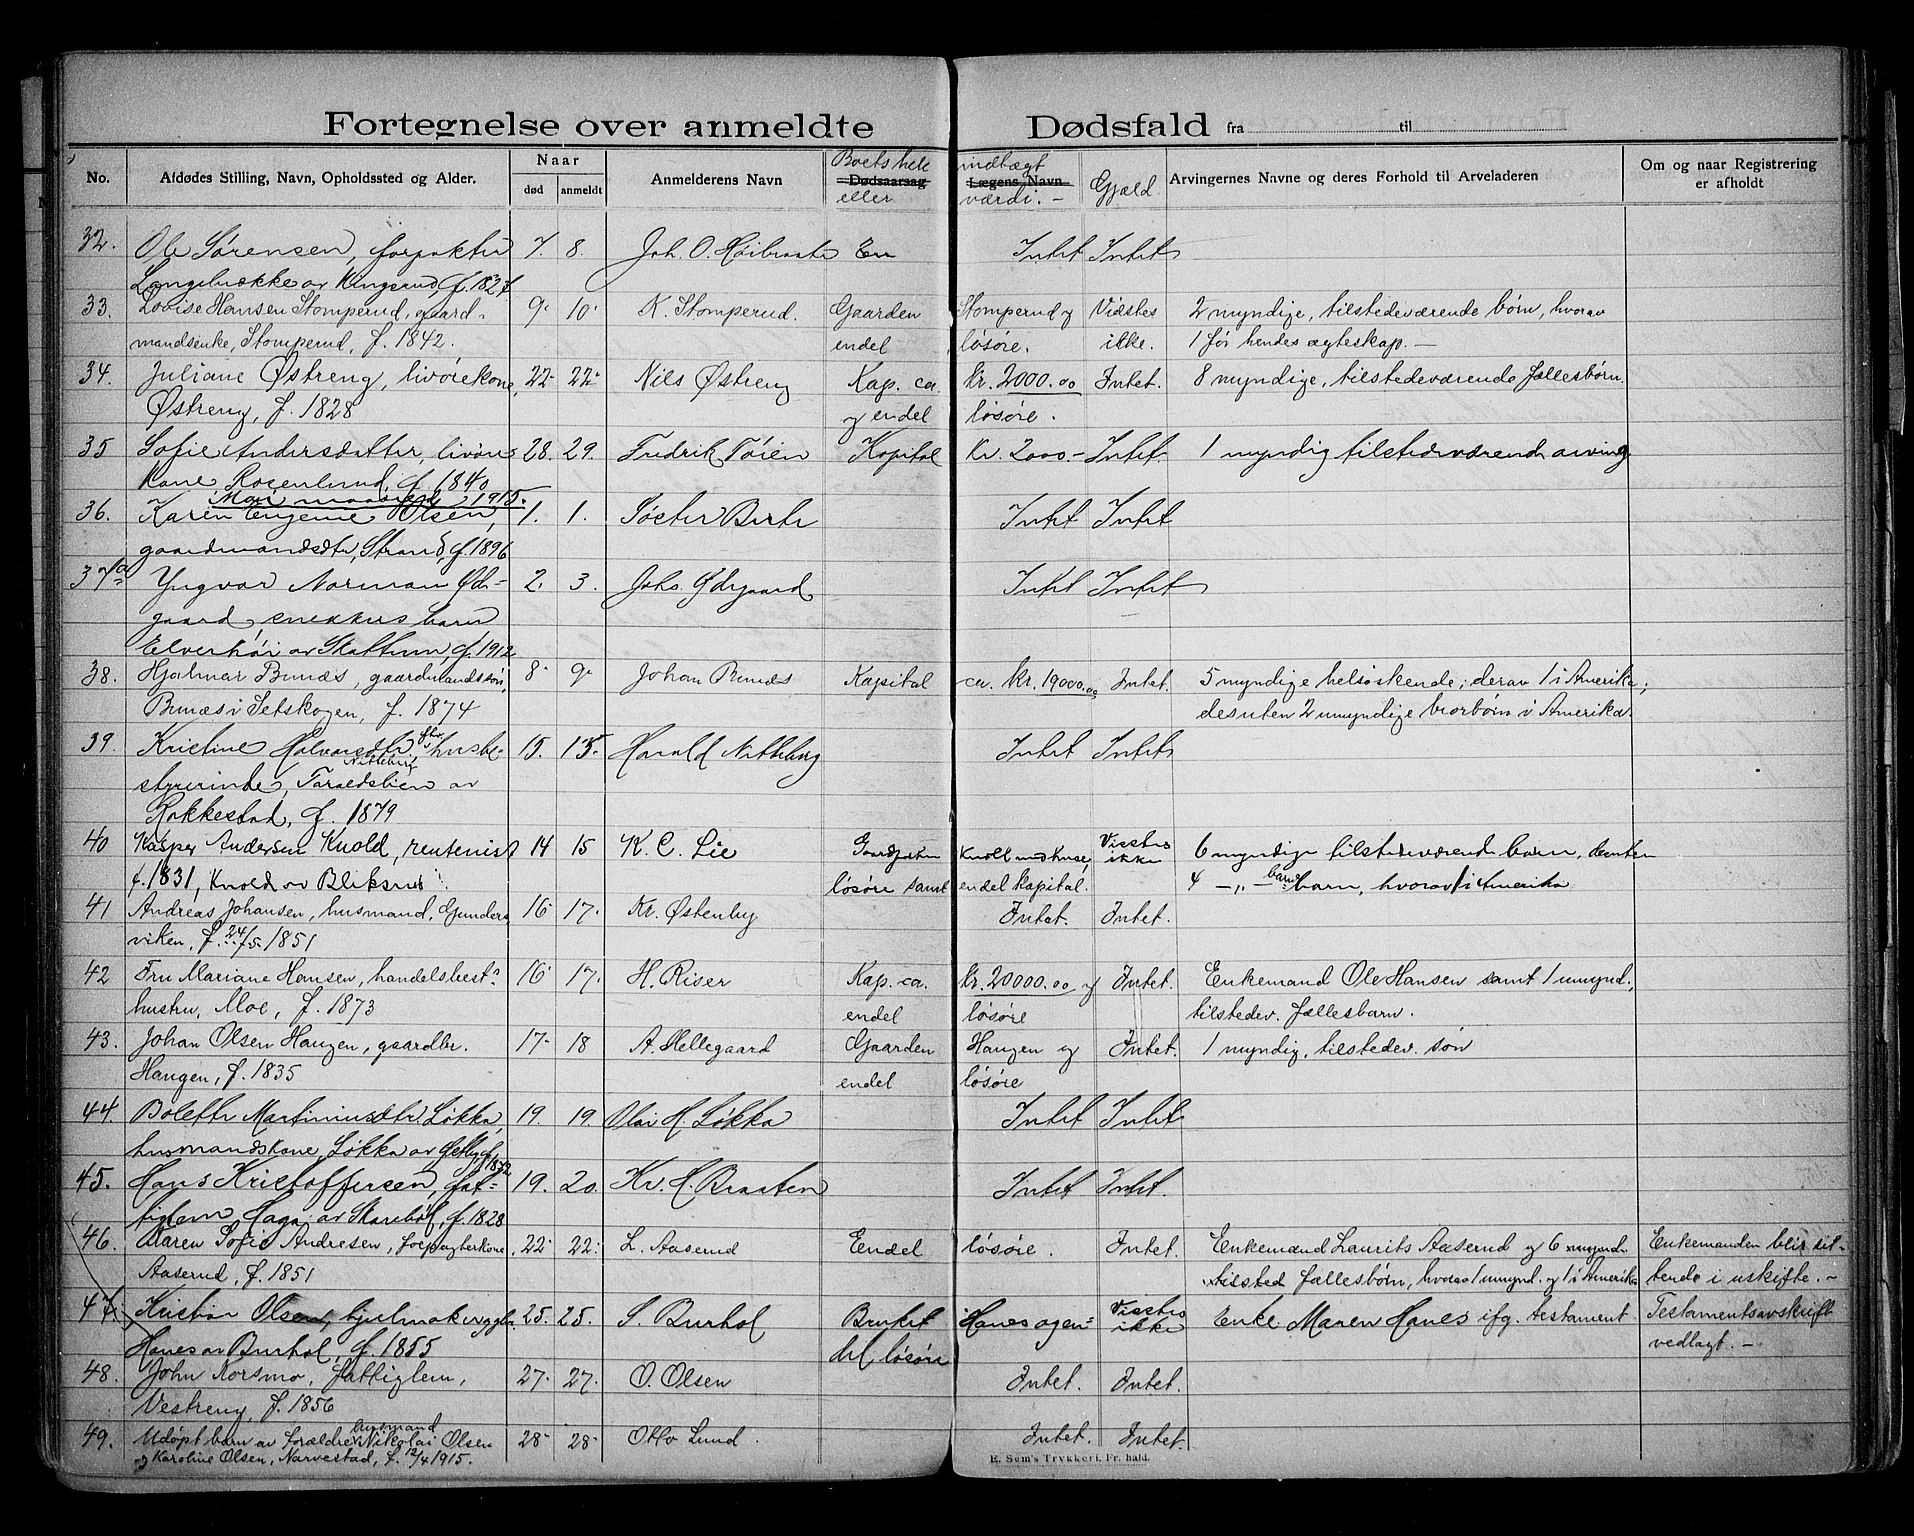 Fortegnelse over anmeldte Dødsfald fra til
No. Afdødes Stilling, Navn, Opholdssted og Alder. Naar død anmeldt Anmelderens Navn Dødsaarsag Lægens Navn Arvingernes Navne og deres Forhold til Arveladeren Om og naar Registrering er afholdt
Boets hele indtægt
eller værdi. - Gjæld.
32. Ole Sørensen, forpakter 7. 8. Joh. O. Høibraaten En Intet Intet
Langebrække av Kingsrud, f. 1827
33. Lovise Hansen Stomperud, gaard- 9- 10- K. Stomperud. Gaarden Stomperud og Vidstes 2 myndige, tilstedeværende børn, hvorav
mandsenke, Stomperud, f. 1842. endel løsøre. ikke. 1 før hendes ægteskap. -
34. Juliane Østreng, livørekone, 22- 22- Nils Østreng Kap. ca. kr. 2000.00 Intet. 8 myndige, tilstedeværende fællesbørn.
Østreng, f. 1828 og endel løsøre.
35 Sofie Andersdatter, livøre 28. 29. Fredrik Tøien Kapital Kr. 2000.- Intet. 1 myndig tilstedeværende arving
kone Rosenlund, f. 1840
Mai maaned 1915.
36. Karen Eugenie Olsen, 1. 1. Søster Berte Intet Intet
gaardmandsdtr, Strand, f. 1896
37a Yngvar Norman Øde- 2. 3. Johs. Ødegaard Intet Intet
gaard, barn
Elverhøi av Skattum, f. 1912
38. Hjalmar Bunæs, gaardmandssøn, 8- 9- Johan Bunæs Kapital ca. kr. 19000.00 Intet. 5 myndige helsøskende; derav 1 i Amerika;
Bunæs i Setskogen, f. 1874 desuten 2 umyndige brorbørn i Amerika.
39. Kristine Halvorsdtr husbe- 15. 15. Harald Nitteberg Intet Intet
Nitteberg
styrerinde, Taraldslien av
Rakkestad, f. 1879
40 Kasper Andersen Knold, rentenist 14 15 K. C. Lie Knold med huse, Visstes 6 myndige tilstedeværende barn, desuten
f. 1831, Knold av Bliksrud løsøre samt endel kapital. ikke 4 -„- barnebarn, hvorav 1 i Amerika
41 Andreas Johansen, husmand, Gunders- 16- 17. Kr. Østenby Intet. Intet.
viken, f. 24/5 1851
42 Fru Mariane Hansen, handelsbest. 16- 17. H. Riser Kap. ca. kr. 20000.00 og Intet. Enkemand Ole Hansen samt 1 umynd.,
hustru, Moe, f. 1873 endel løsøre tilstedev. fællesbarn.
43. Johan Olsen Haugen, gaardbr. 17- 18 A. Hellegaard Gaarden Haugen og Intet. 1 myndig, tilstedev. søn
Haugen, f. 1835 endel løsøre
44. Bolette Martinusdtr. Løkka, 19. 19. Olai H. Løkka Intet Intet
husmandskone, Løkka av f. 1872
45. Hans Kristoffersen, fat- 19. 20. Kr. H. Braaten Intet Intet.
tiglem Haga av Skarebøl, f. 1828
46. Karen Sofie Andresen, forpagterkone, 22- 22- L. Aaserud Endel løsøre. Intet. Enkemand Laurits Aaserud og 6 myndr. Enkemanden blir sit-
Aaserud, f. 1851 tilsted fællesbørn, hvorav 1 umynd. og 1 i Amerika tende i uskifte. -
47. Kristian Olsen, hjulmaker 25. 25. S. Burhol Bruket Hanes og en- Visstes Enke Maren Hanes ifg. testament. Testamentsavskrift
Hanes av Burhol, f. 1855 del løsøre ikke vedlagt. -
48. John Korsmo, fattiglem, 27- 27. O. Olsen Intet. Intet.
Vestreng, f. 1856
49. Udøpt barn av forældre husmand Nikolai Olsen 28- 28- Otto Lund. Intet. Intet.
og Karoline Olsen, Narvestad, f. 12/4 1915.
E. Sem's Trykkeri, Fr. hald.